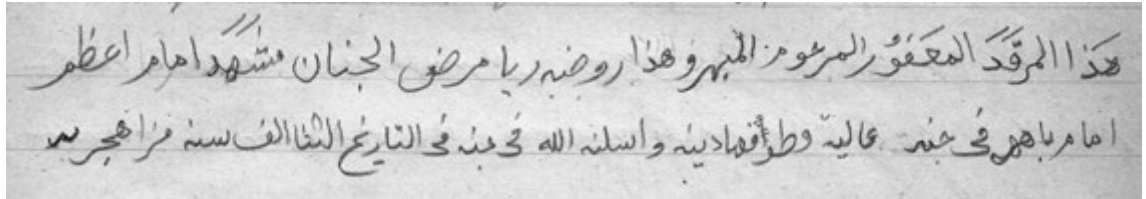 هذا المرقد المغفور المرحوم المبهر وهذا روضه رياض الجنان مشهد امام اعظم
امام باهر فى جنه عالية قطوفها دينه واسكنه الله فى جنه فى التاريخ الف سنه من اهجريه